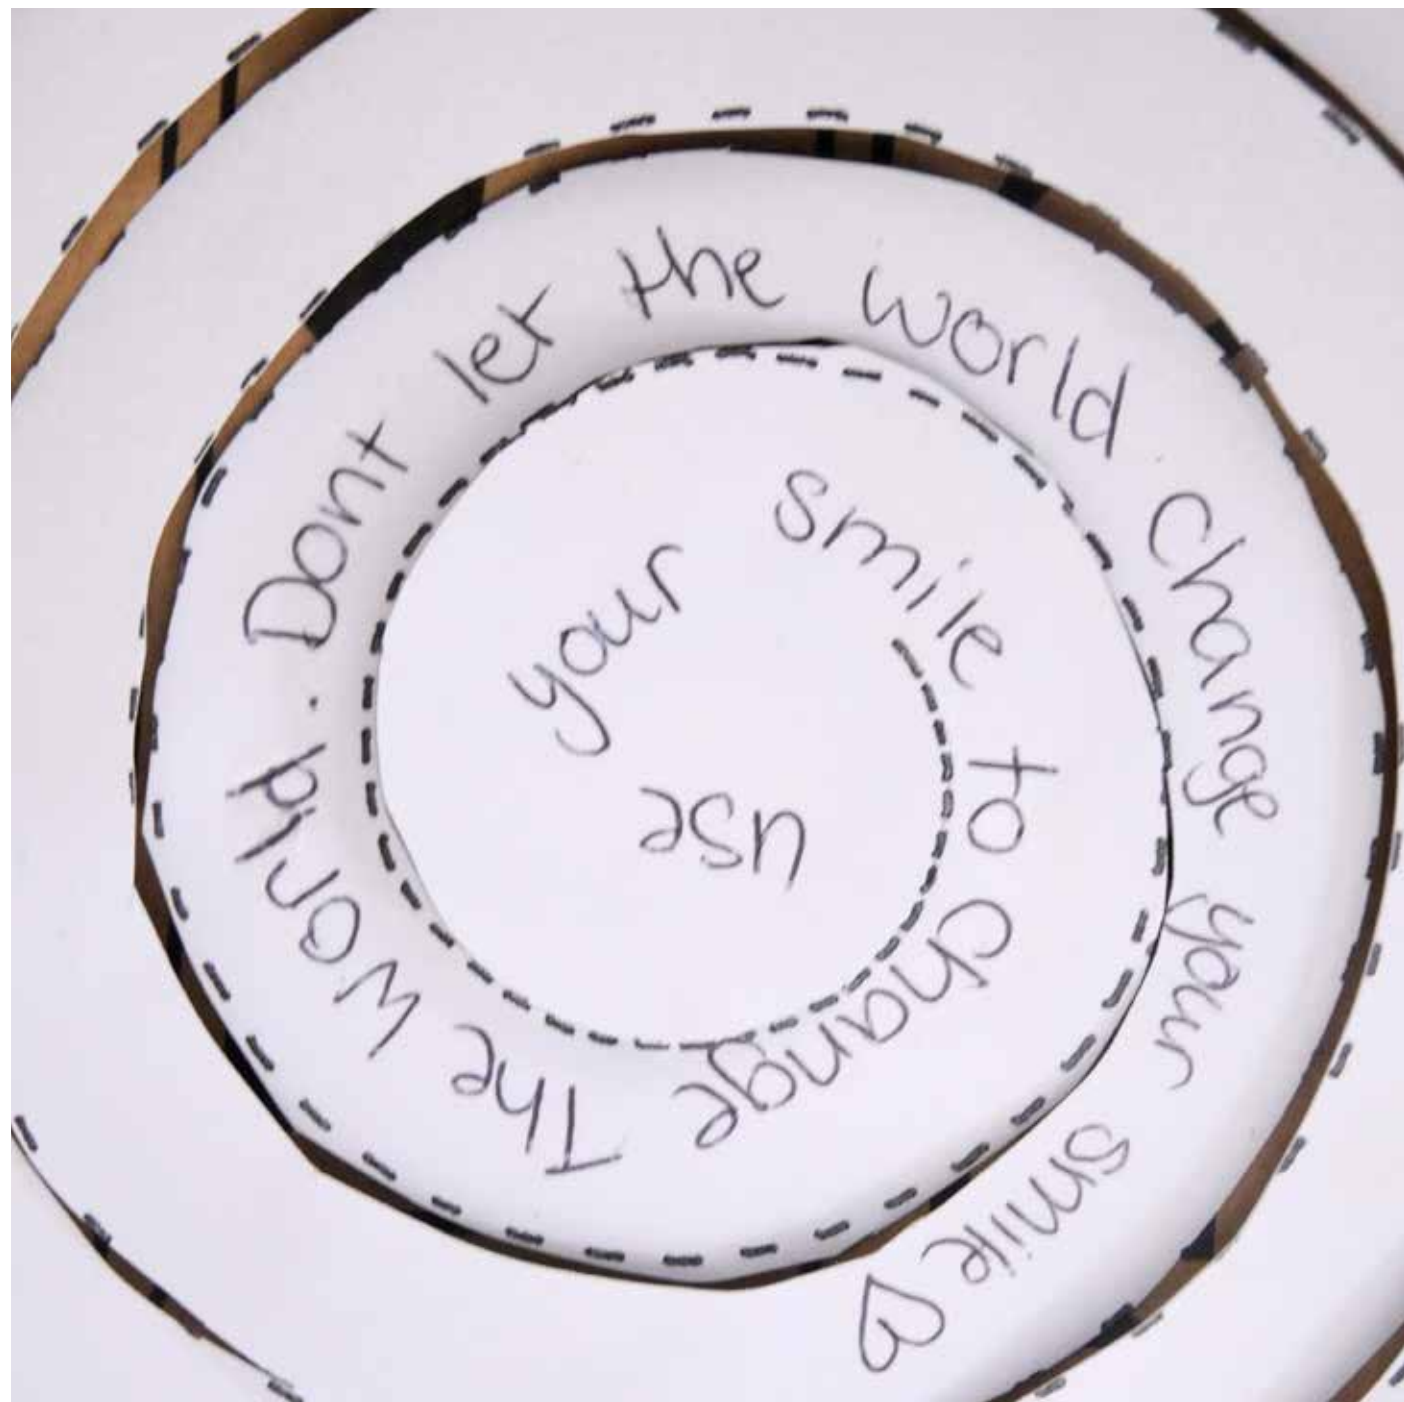 use your smile to change The World. Dont let the world change your smile ♡